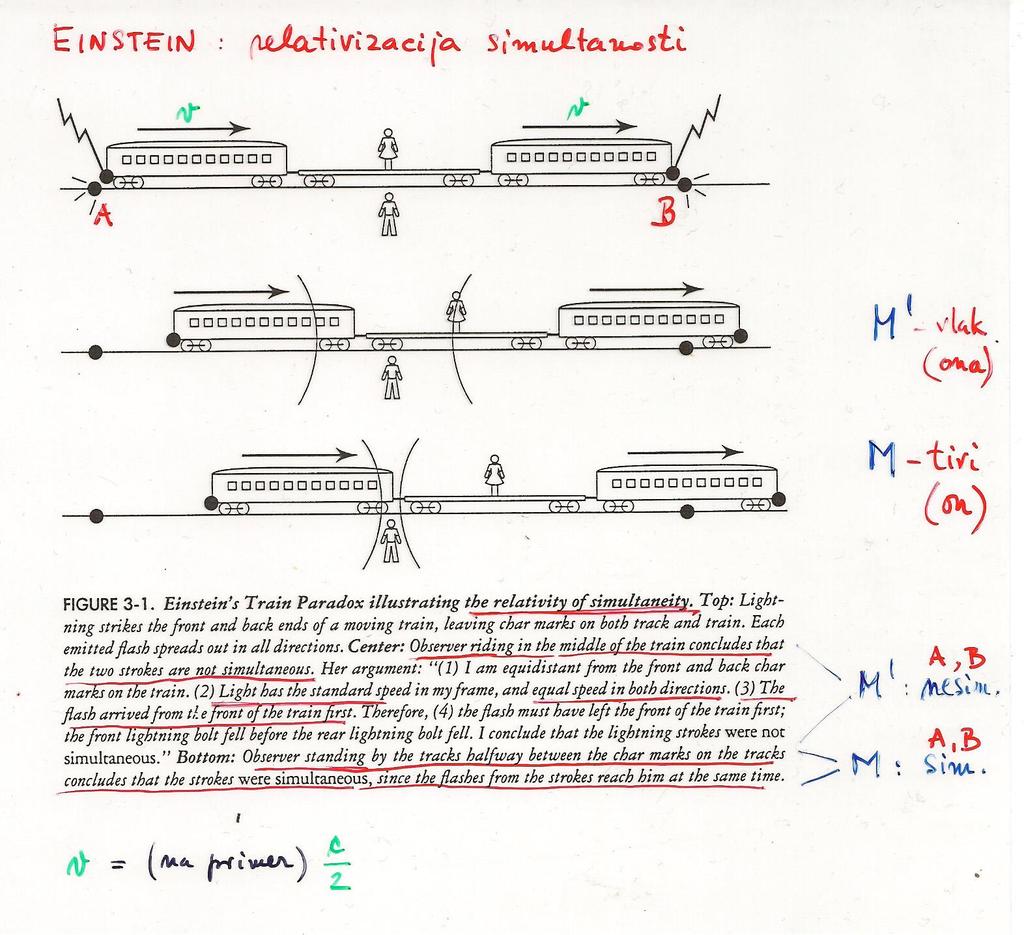 EINSTEIN : relativizacija simultanosti
v v
A B
M' - vlak
(ona)
M - tiri
(on)
FIGURE 3-1. Einstein's Train Paradox illustrating the relativity of simultaneity. Top: Light-
ning strikes the front and back ends of a moving train, leaving char marks on both track and train. Each
emitted flash spreads out in all directions. Center: Observer riding in the middle of the train concludes that
the two strokes are not simultaneous. Her argument: "(1) I am equidistant from the front and back char
marks on the train. (2) Light has the standard speed in my frame, and equal speed in both directions. (3) The
flash arrived from the front of the train first. Therefore, (4) the flash must have left the front of the train first;
the front lightning bolt fell before the rear lightning bolt fell. I conclude that the lightning strokes were not
simultaneous." Bottom: Observer standing by the tracks halfway between the char marks on the tracks
concludes that the strokes were simultaneous, since the flashes from the strokes reach him at the same time.
A, B
M' : nesim.
A, B
M : sim.
v = (na primer) c/2